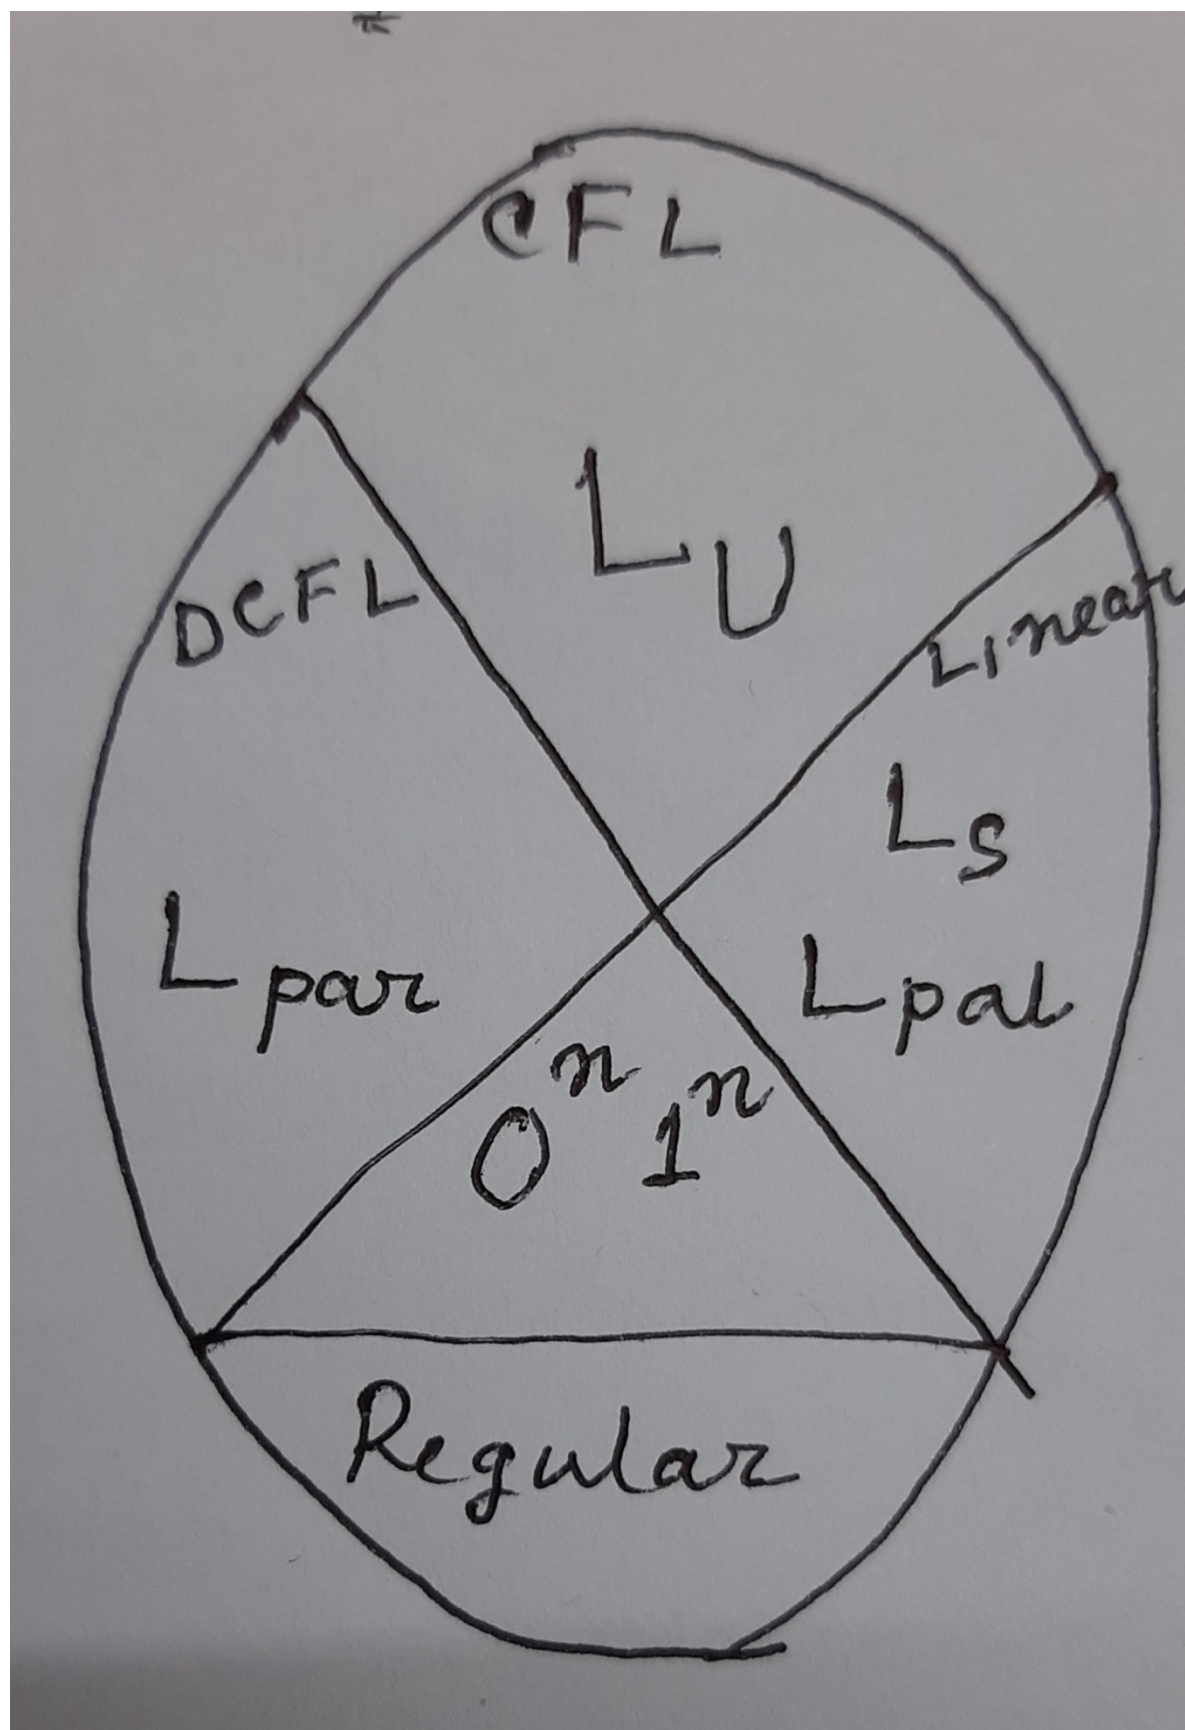 CFL
L_U
DCFL
Linear
L_S
L_par
L_pal
0^n 1^n
Regular